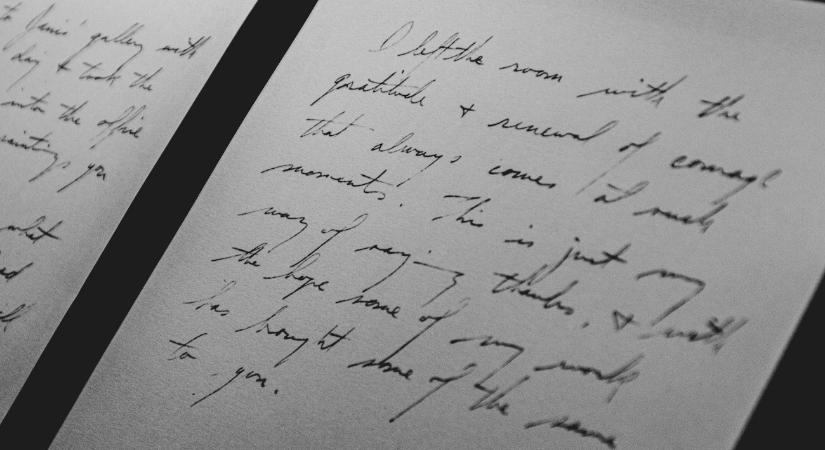 to Jim's gallery with
day & took the
into the office
paintings you
what
I left the room with the
gratitude & renewal of courage
that always comes at such
moments. This is just my
way of saying thanks, & with
the hope some of my work
has brought some of the same
to you.